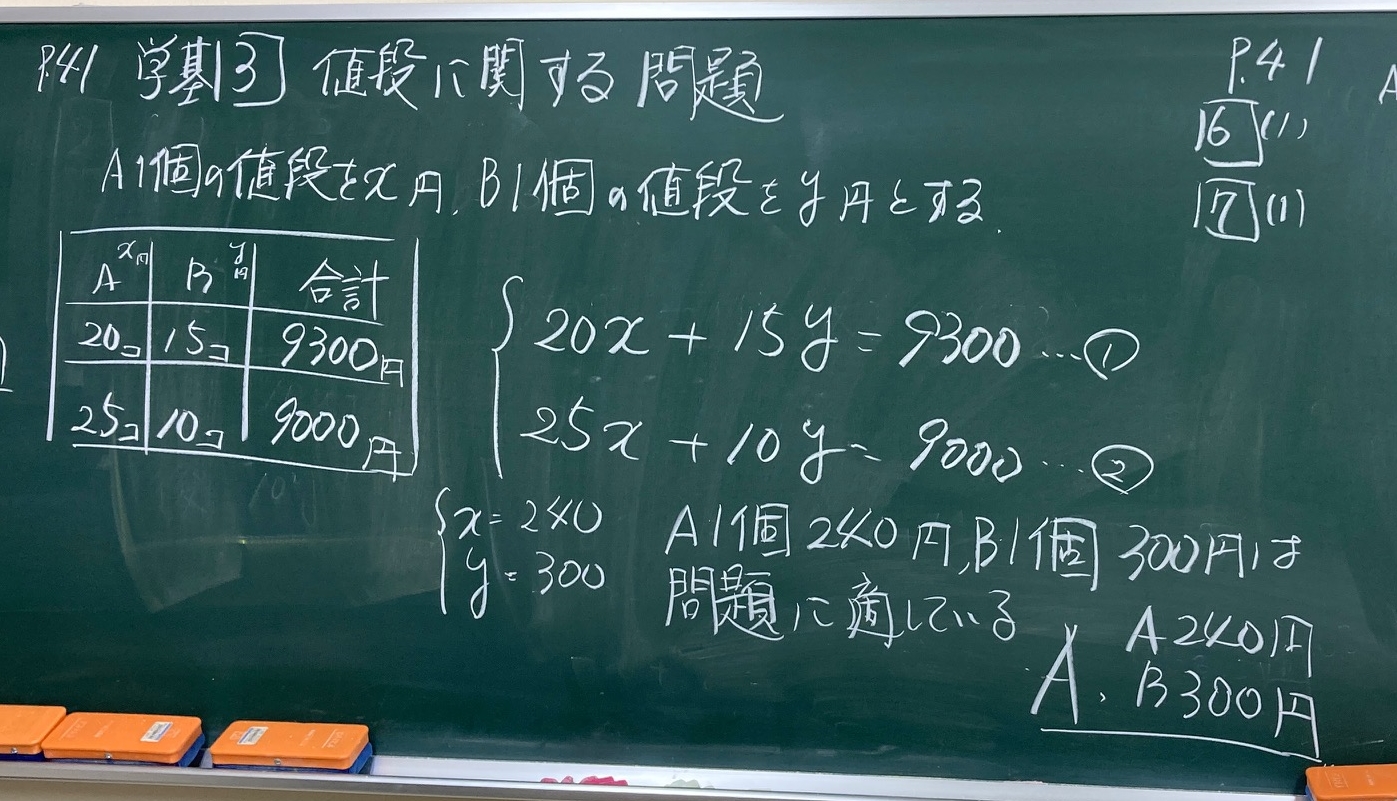 P.41 学基13 値段に関する問題
A1個の値段をx円,B1個の値段をy円とする.
A x円 B y円 合計
20コ 15コ 9300円
25コ 10コ 9000円
20x + 15y = 9300 … ①
25x + 10y = 9000 … ②
x = 240
y = 300
A1個240円,B1個300円は
問題に適している
A. A240円
B300円
P.41
16 (1)
17 (1)
A